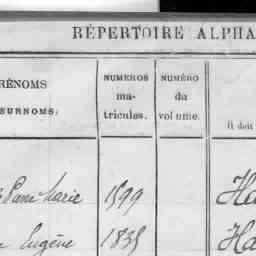 RÉPERTOIRE ALPHA
RÉNOMS
SURNOMS.
NUMEROS
ma-
tricules.
NUMÉRO
du
volume.
Il doit
Pierre Marie 1599 Ha
Eugène 1835 Ha